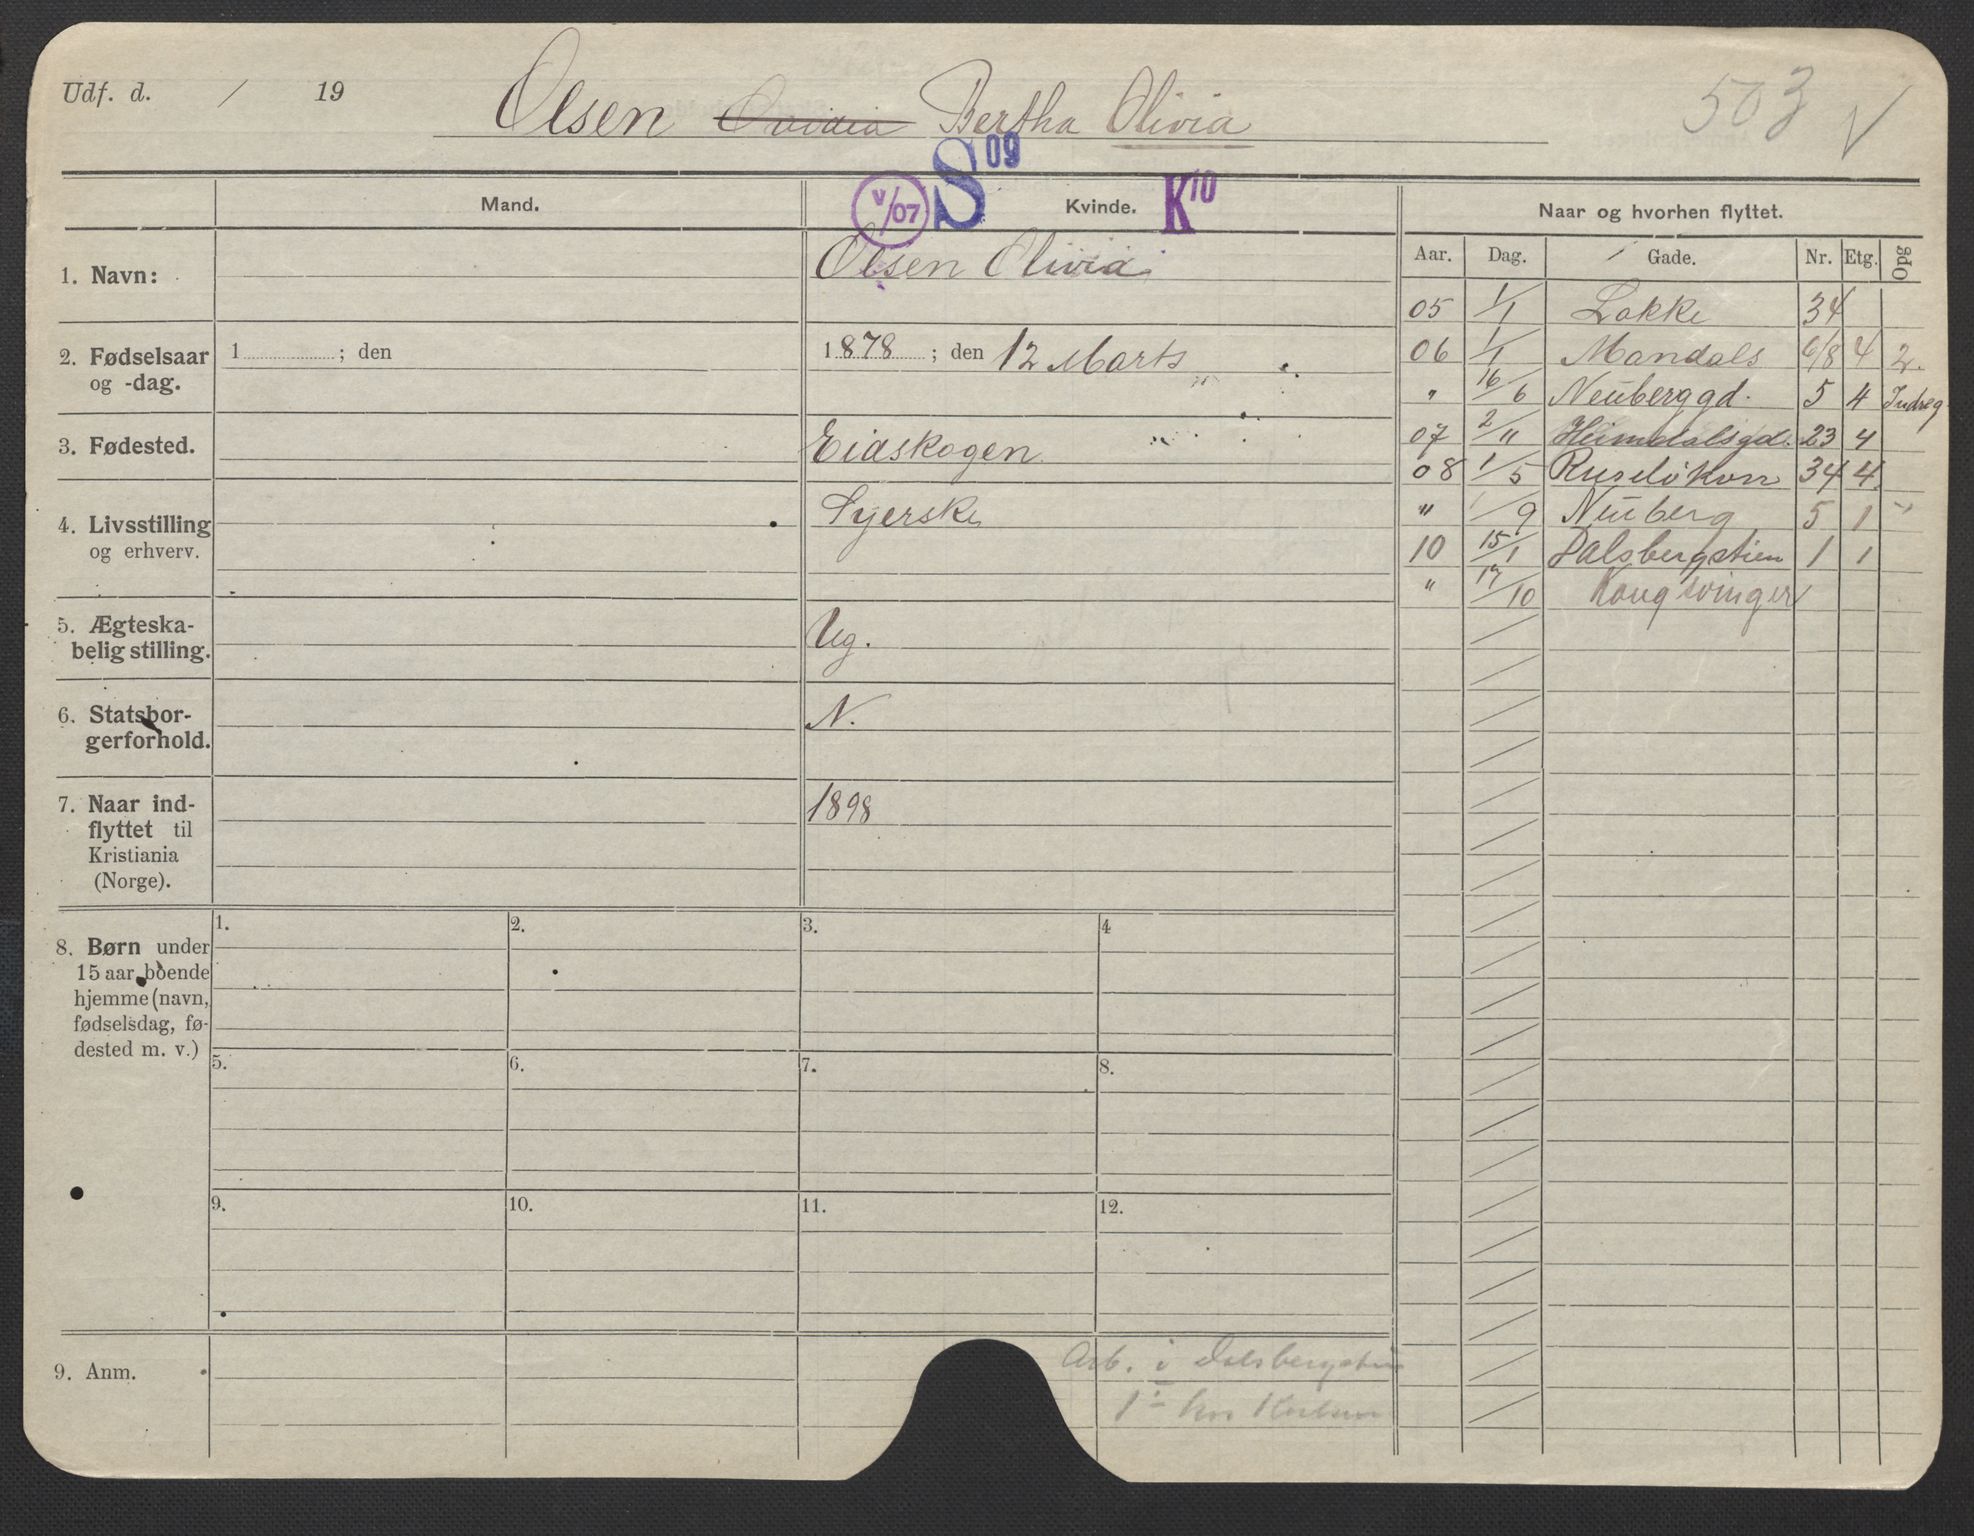 Udf. d. / 19
Olsen Ovidia Bertha Olivia
503 ✓
V/07 S 09 K 10
Mand. Kvinde. Naar og hvorhen flyttet.
Aar. Dag. Gade. Nr. Etg. Opg
1. Navn: Olsen Olivia
2. Fødselsaar 1 ; den 1878 ; den 12 Marts
og -dag.
3. Fødested. Eidskogen
4. Livsstilling Syerske
og erhverv.
5. Ægteska-
belig stilling. Ug.
6. Statsbor-
gerforhold. N.
7. Naar ind-
flyttet til
Kristiania
(Norge). 1898
05 1/1 Løkke 34
06 1/1 Mandals 6/8 4 2.
" 16/6 Neuberggd. 5 4 Indreg
07 2/11 Heimdalsgd. 23 4
08 1/5 Ruseløkvn 34 4
" 1/9 Neuberg 5 1 "
10 15/1 Dalsbergstien 1 1
" 17/10 Kongsvinger
8. Børn under
15 aar boende
hjemme (navn,
fødselsdag, fø-
dested m. v.)
1. 2. 3. 4
5. 6. 7. 8.
9. 10. 11. 12.
9. Anm. Arb. i Dalsbergstien
1 hos